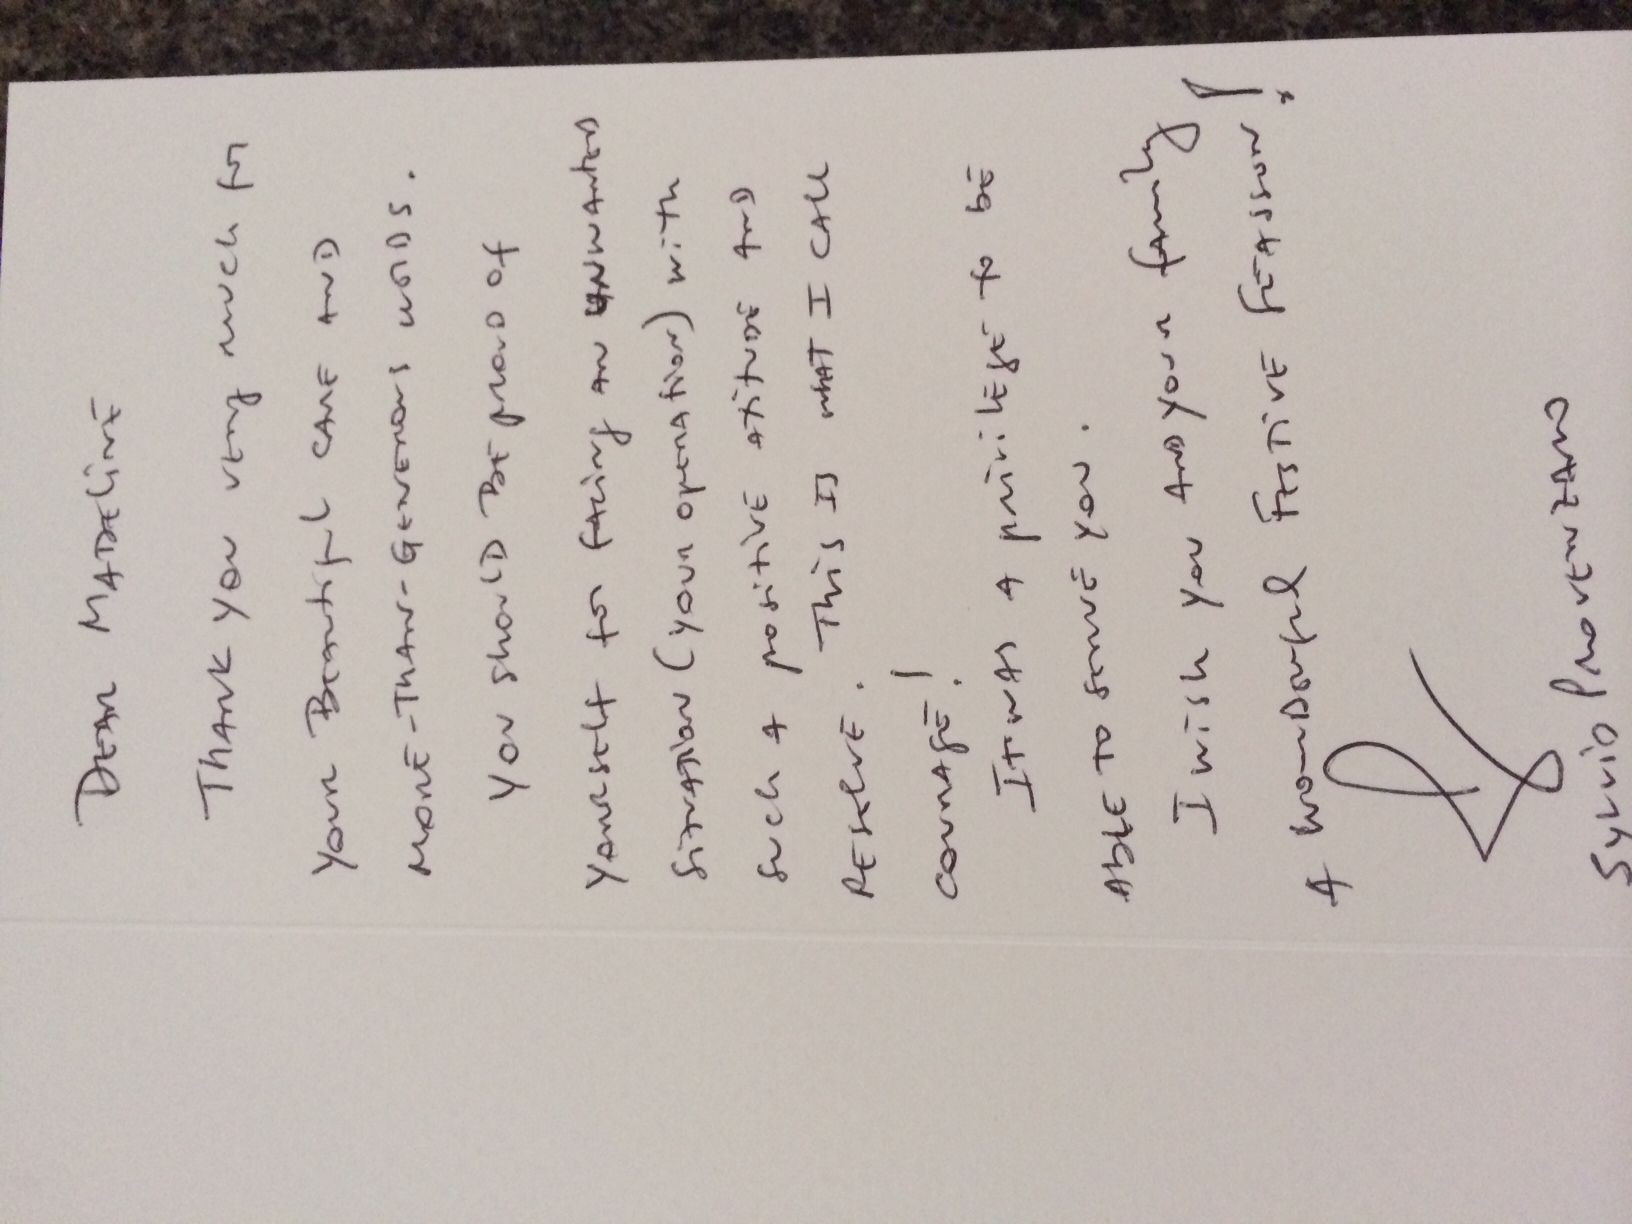 Dear Madeline
Thank you very much for
your Beautiful care and
more-than-Generous words.
You should be proud of
yourself for facing an unwanted
situation (your operation) with
such a positive atitude and
reserve. This is what I call
courage!
It was a privilege to be
able to serve you.
I wish you and your family
a wonderful Festive Seasson!
Sylvio Provenzano